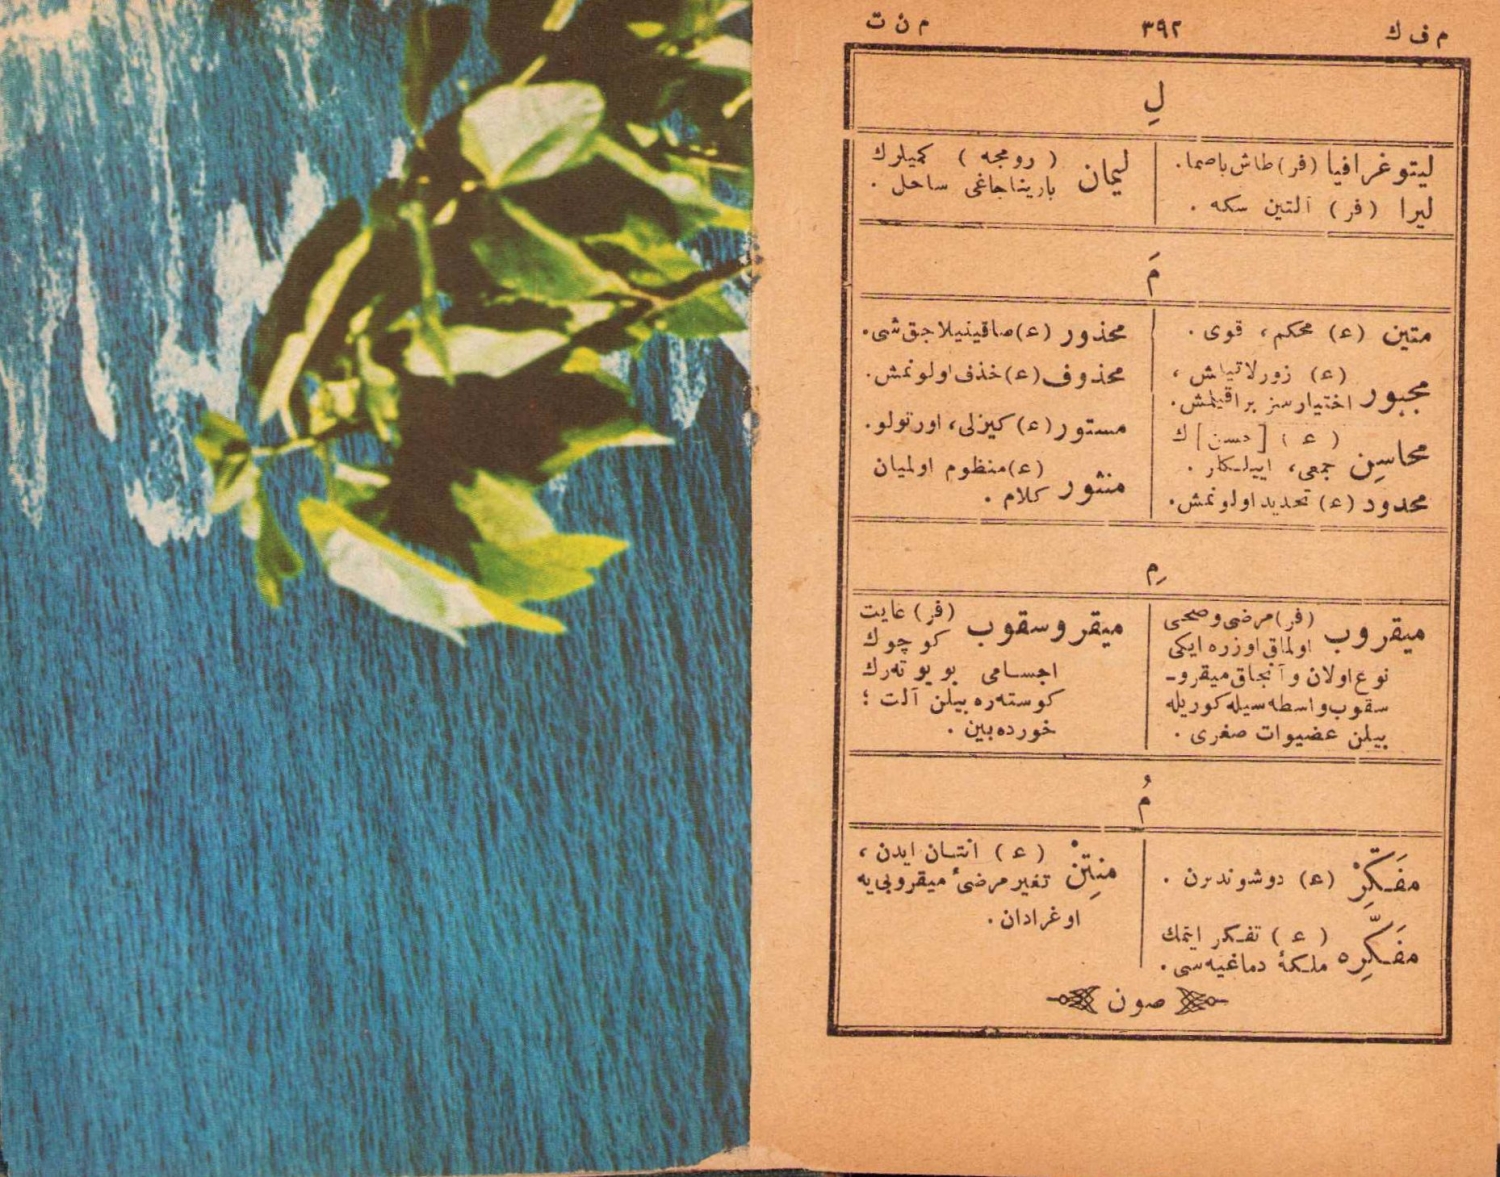 م ف ك ٣٩٢ م ن ت
لِ
ليتوغرافيا (فر) طاش باصما.
ليرا (فر) آلتين سكه .
ليمان ( رومجه ) كميلرك
بارينا جاغى ساحل .
مَ
متين (ع) محكم ، قوى .
مجبور (ع) زورلاتيلمش ،
اختيارسز براقيلمش.
محاسِن ( ع ) [حسن] ك
جمعى، اييلكلر .
محدود (ع) تحديد اولونمش.
محذور (ع) صاقينيلاجق شى.
محذوف (ع) حذف اولونمش.
مستور (ع) كيزلى، اورتولو.
منثور (ع) منظوم اولميان
كلام .
مِ
ميقروب (فر) مرضى وصحى
اولماق اوزره ايكى
نوع اولان و آنجاق ميقرو-
سقوب واسطه سيله كوريله
بيلن عضيوات صغرى .
ميقروسقوب (فر) غايت
كوچوك
اجسامى بويوتەرك
كوستەره بيلن آلت ؛
خورده بين .
مُ
مفَكِّرْ (ع) دوشوندرن .
مفَكِّرِه ( ع ) تفكر ايتمك
ملكهٔ دماغيه سى .
منتِنْ ( ع ) انتان ايدن ،
تغير مرضىٔ ميقروبى يه
اوغرادان .
صون